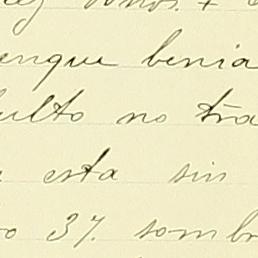 años. +
enque benia
ulto no tra
esta sin
o 37. sombr